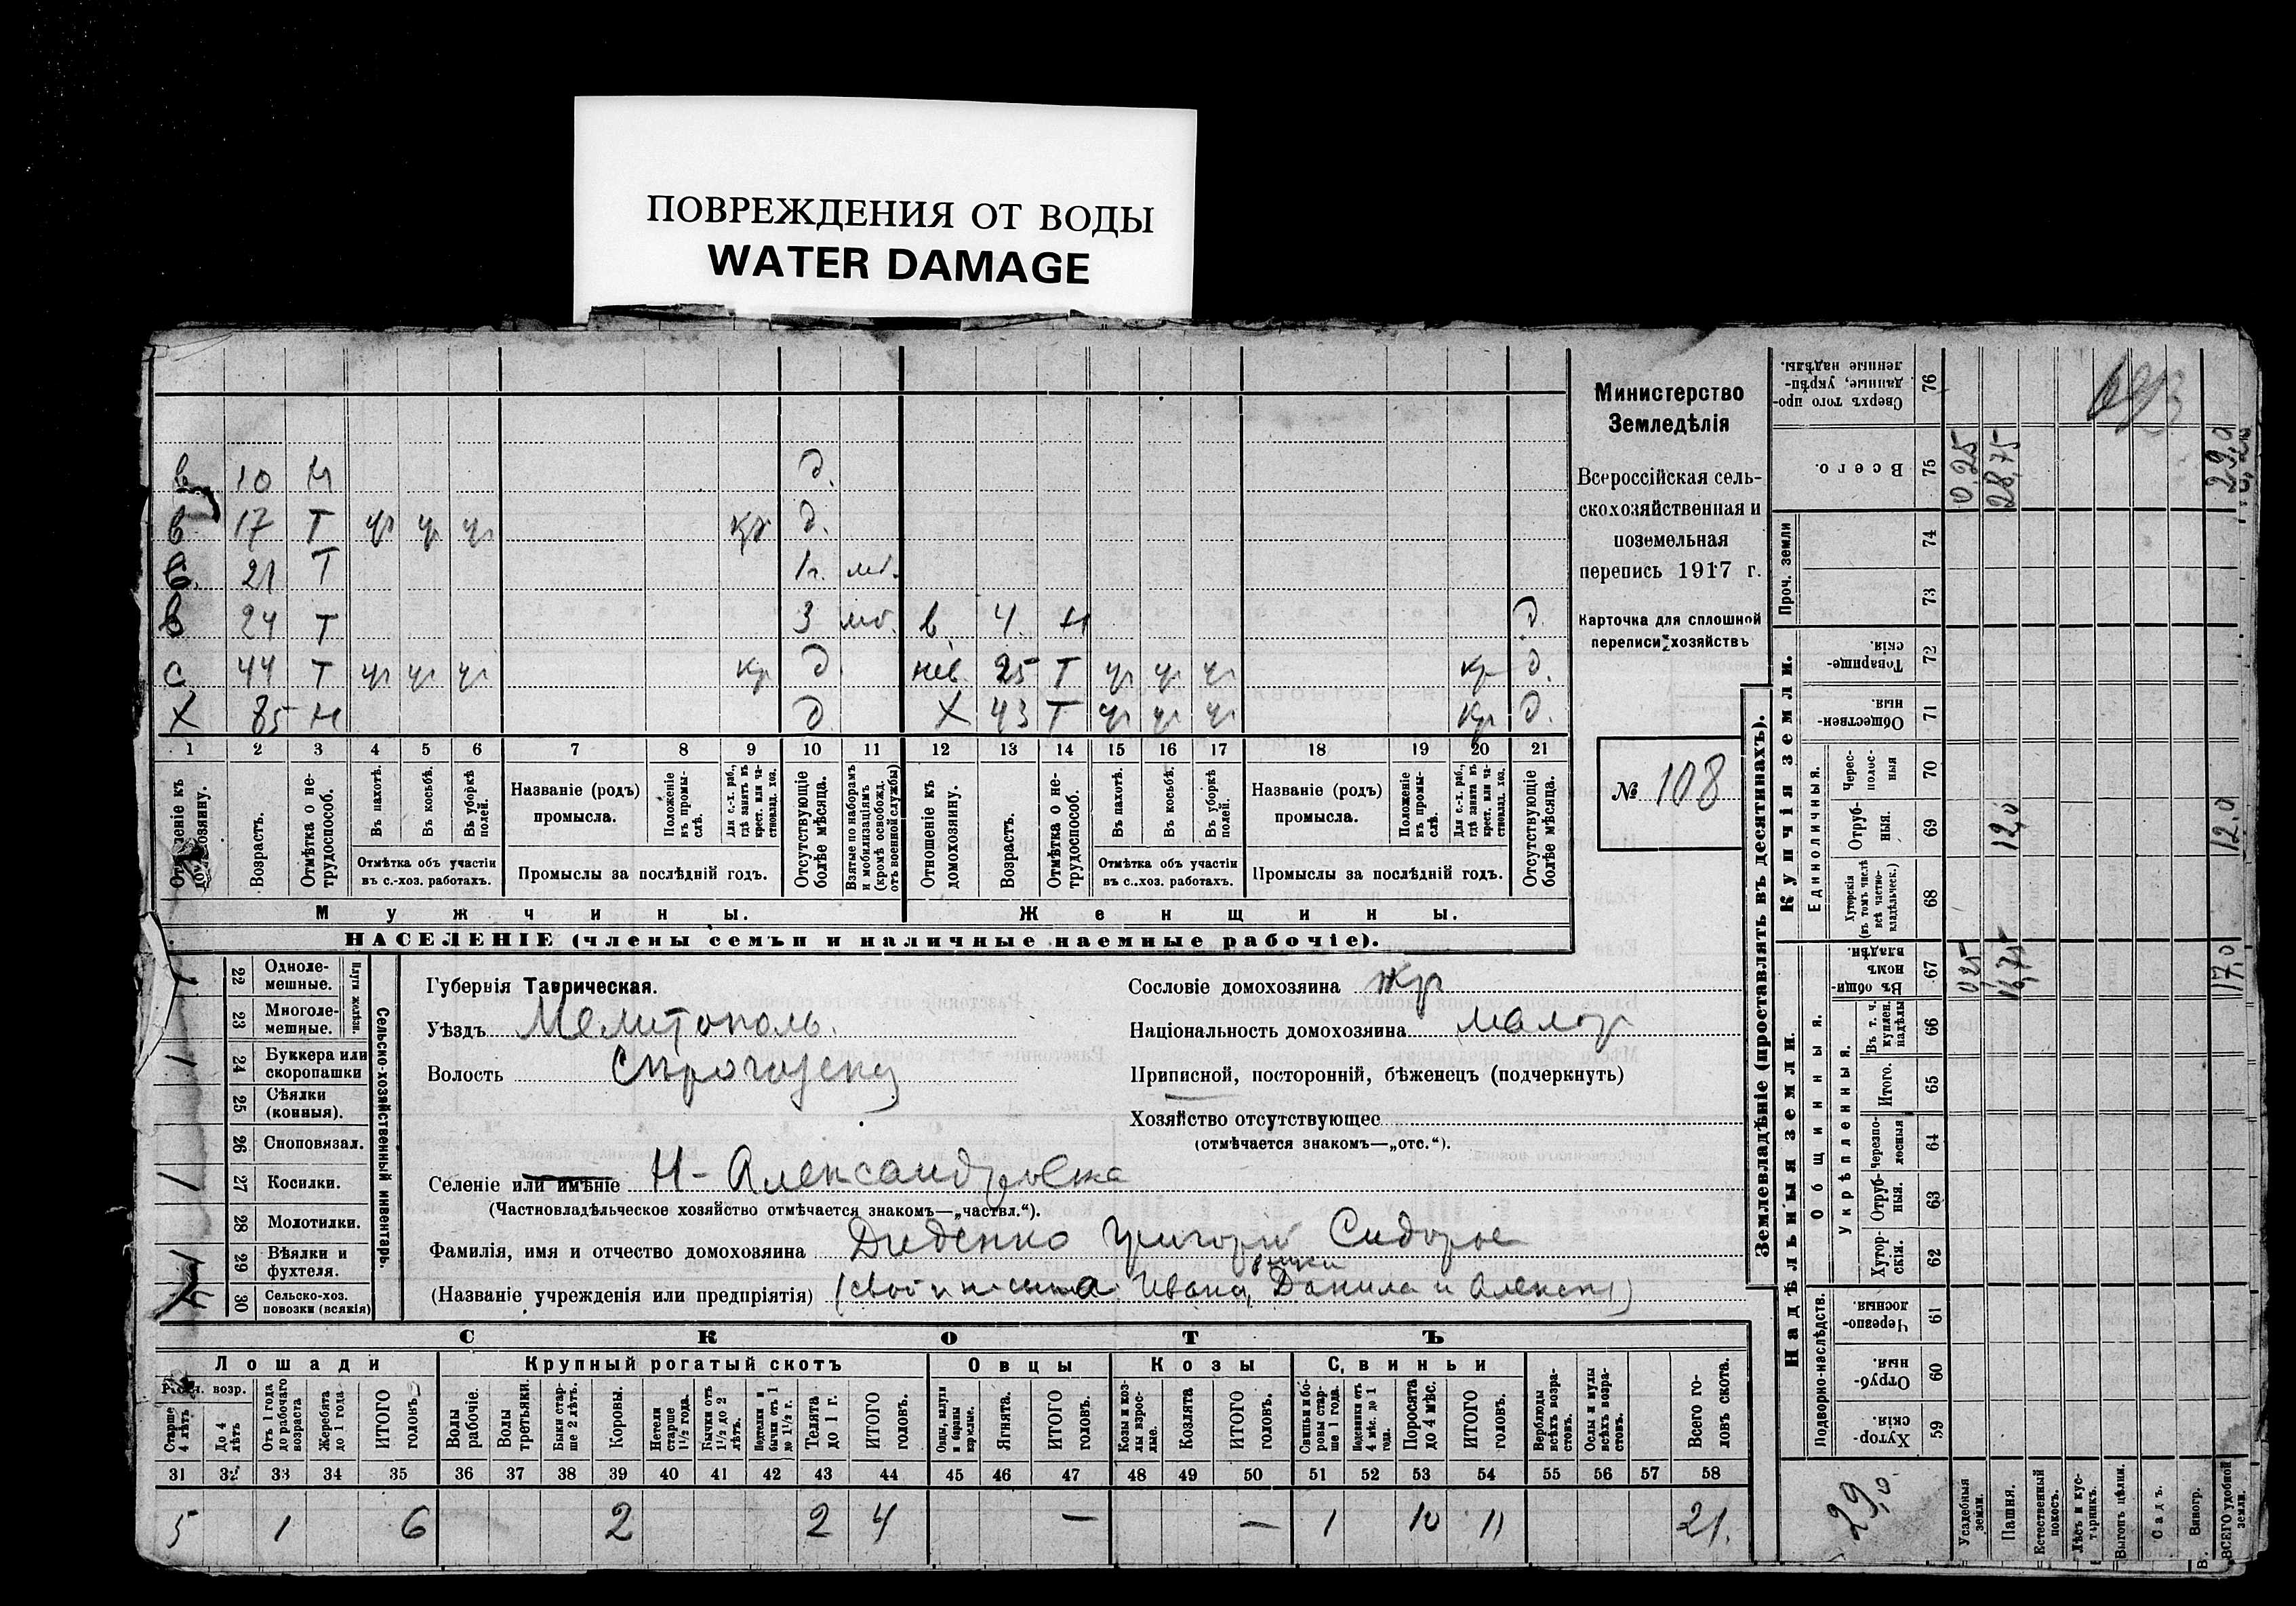 ПОВРЕЖДЕНИЯ ОТ ВОДЫ
WATER DAMAGE
в 10 Н д.
в 17 Т уч уч уч кр д.
в. 21 Т 1г. мб.
в 24 Т 3 мб. в. 4 Н д.
с 44 Т уч уч уч кр д. нев. 25 Т уч уч уч кр д.
Х 85 Н д Х 43 Т уч уч уч кр д.
1 2 3 4 5 6 7 8 9 10 11 12 13 14 15 16 17 18 19 20 21
Возрастъ.
Отмѣтка о нетрудоспособ.
Въ пахотѣ.
Въ косьбѣ.
Въ уборкѣ полей.
Отмѣтка объ участіи въ с.-хоз. работахъ.
Названіе (родъ) промысла.
Положеніе въ промыслѣ.
Для с.-х. раб., гдѣ занятъ въ крест. или частновлад. хоз.
Промыслы за послѣдній годъ.
Отсутствующіе болѣе мѣсяца.
Взятые по наборамъ и мобилизаціямъ (кромѣ освобожд. отъ военной службы)
Отношеніе къ домохозяину.
Возрастъ.
Отмѣтка о нетрудоспособ.
Въ пахотѣ.
Въ косьбѣ.
Въ уборкѣ полей.
Отмѣтка объ участіи въ с.-хоз. работахъ.
Названіе (родъ) промысла.
Положеніе въ промыслѣ.
Для с.-х. раб., гдѣ занята въ крест. или частновлад. хоз.
Промыслы за послѣдній годъ.
Отсутствующіе болѣе мѣсяца.
Мужчины. Женщины.
НАСЕЛЕНІЕ (члены семьи и наличные наемные рабочіе).
Министерство
Земледѣлія
Всероссійская сель-
скохозяйственная и
поземельная
перепись 1917 г.
Карточка для сплошной
переписи хозяйствъ
№ 108
22 Однолемешные.
23 Многолемешные.
Плуги желѣзн.
24 Буккера или скоропашки
25 Сѣялки (конныя).
26 Сноповязал.
27 Косилки.
28 Молотилки.
29 Вѣялки и фухтеля.
30 Сельско-хоз. повозки (всякія)
Сельско-хозяйственный инвентарь.
Губернія Таврическая.
Уѣздъ Мелитополь.
Волость
Селеніе или имѣніе Н-Александровка
(Частновладѣльческое хозяйство отмѣчается знакомъ—„частвл.“).
Фамилія, имя и отчество домохозяина Диденко Григорій Сидоров
(Названіе учрежденія или предпріятія) Ивана, Данила и Алексѣя)
Сословіе домохозяина кр
Національность домохозяина малор
Приписной, посторонній, бѣженецъ (подчеркнуть)
Хозяйство отсутствующее
(отмѣчается знакомъ—„отс.“).
СКОТЪ
Лошади Крупный рогатый скотъ Овцы Козы Свиньи
Старше 4 лѣтъ
До 4 лѣтъ
Отъ 1 года до рабочаго возраста
Жеребята до 1 года
ИТОГО головъ
Волы рабочіе.
Волы третьяки.
Быки старше 2 лѣтъ.
Коровы.
Нетели старше 1½ года.
Бычки отъ 1½ до 2 лѣтъ.
Подтелки и бычки отъ 1 до 1½ г.
Телята до 1 г.
ИТОГО головъ.
Овцы, валухи и бараны взрослые.
Ягнята.
ИТОГО головъ.
Козы и козлы взрослые.
Козлята
ИТОГО головъ.
Свиньи и боровы старше 1 года.
Подсвинки отъ 4 мѣс. до 1 года.
Поросята до 4 мѣс.
ИТОГО головъ.
Верблюды всѣхъ возрастовъ.
Ослы и мулы всѣхъ возрастовъ.
Всего головъ скота.
31 32 33 34 35 36 37 38 39 40 41 42 43 44 45 46 47 48 49 50 51 52 53 54 55 56 57 58
5 1 6 2 2 4 — — 1 10 11 21.
Землевладѣніе (проставлять въ десятинахъ).
Сверхъ того проданные, укрѣпленные надѣлы. 76
Всего. 75 0,25 28,75 29,0
Проч. земли 74 73
Купчія земли.
Товарищескія. 72
Общественныя 71
Единоличныя.
Чересполосныя 70
Отрубныя. 69 12,0 12,0
Хуторскія (въ томъ числѣ всѣ частновладѣльческ.) 68
Надѣльныя земли.
Общинныя.
Въ общинномъ владѣн. 67 0,25 16,75 17,0
Укрѣпленныя.
Въ т. ч. куплен. надѣлы 66
Итого. 65
Черезполосныя 64
Отрубныя. 63
Хуторскія. 62
Подворно-наслѣдств.
Черезполосныя 61
Отрубныя. 60
Хуторскія 59
29,0
Усадебныя земли.
Пашня.
Естественный покосъ.
Лѣсъ и кустарникъ.
Выгонъ цѣлин.
Садъ.
Виногр.
ВСЕГО удобной земли.